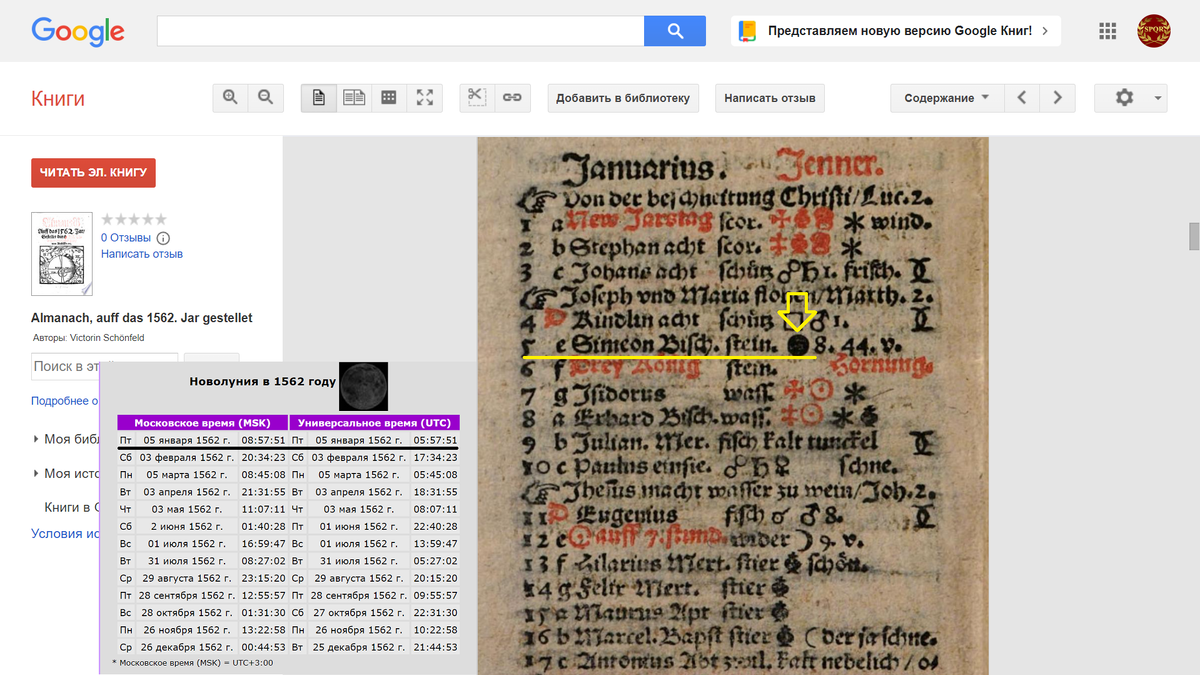 Google
Представляем новую версию Google Книг!
SPQR
Книги
Добавить в библиотеку
Написать отзыв
Содержание
ЧИТАТЬ ЭЛ. КНИГУ
0 Отзывы
Написать отзыв
Almanach, auff das 1562. Jar gestellet
Авторы: Victorin Schönfeld
Поиск в эт
Подробнее о
Моя биб
Моя исто
Книги в
Условия ис
Новолуния в 1562 году
Московское время (MSK) Универсальное время (UTC)
Пт 05 января 1562 г. 08:57:51 Пт 05 января 1562 г. 05:57:51
Сб 03 февраля 1562 г. 20:34:23 Сб 03 февраля 1562 г. 17:34:23
Пн 05 марта 1562 г. 08:45:08 Пн 05 марта 1562 г. 05:45:08
Вт 03 апреля 1562 г. 21:31:55 Вт 03 апреля 1562 г. 18:31:55
Чт 03 мая 1562 г. 11:07:11 Чт 03 мая 1562 г. 08:07:11
Сб 2 июня 1562 г. 01:40:28 Пт 01 июня 1562 г. 22:40:28
Вс 01 июля 1562 г. 16:59:47 Вс 01 июля 1562 г. 13:59:47
Вт 31 июля 1562 г. 08:27:02 Вт 31 июля 1562 г. 05:27:02
Ср 29 августа 1562 г. 23:15:20 Ср 29 августа 1562 г. 20:15:20
Пт 28 сентября 1562 г. 12:55:57 Пт 28 сентября 1562 г. 09:55:57
Вс 28 октября 1562 г. 01:31:30 Сб 27 октября 1562 г. 22:31:30
Пн 26 ноября 1562 г. 13:22:58 Пн 26 ноября 1562 г. 10:22:58
Ср 26 декабря 1562 г. 00:44:53 Вт 25 декабря 1562 г. 21:44:53
* Московское время (MSK) = UTC+3:00
Januarius. Jenner.
Von der beschneitung Christi/Luc.2.
1 a New Jarstag scor. wind.
2 b Stephan acht scor.
3 c Johans acht schütz ☍ ♄ 1. frisch.
Joseph vnd Maria /Matth. 2.
4 D Kindlin acht schütz ♂ 1.
5 e Simeon Bisch. stein. ● 8. 44. v.
6 f Drey König stein. Hornung.
7 g Isidorus wass.
8 a Erhard Bisch. wass.
9 b Julian. Mer. fisch kalt tunckel
10 c Paulus einsie. ☍ ♄ ♀ schne.
Jhesus macht wasser zu wein/Joh.2.
11 D Eugenius fisch ♂ 8.
12 e auff 7. stund. wider ☽ 9. v.
13 f Hilarius Mert. stier schön.
14 g Felix Mert. stier
15 a Maurus Apt stier
16 b Marcel. Bapst stier schne.
17 c Antonius Abt kalt nebelich /